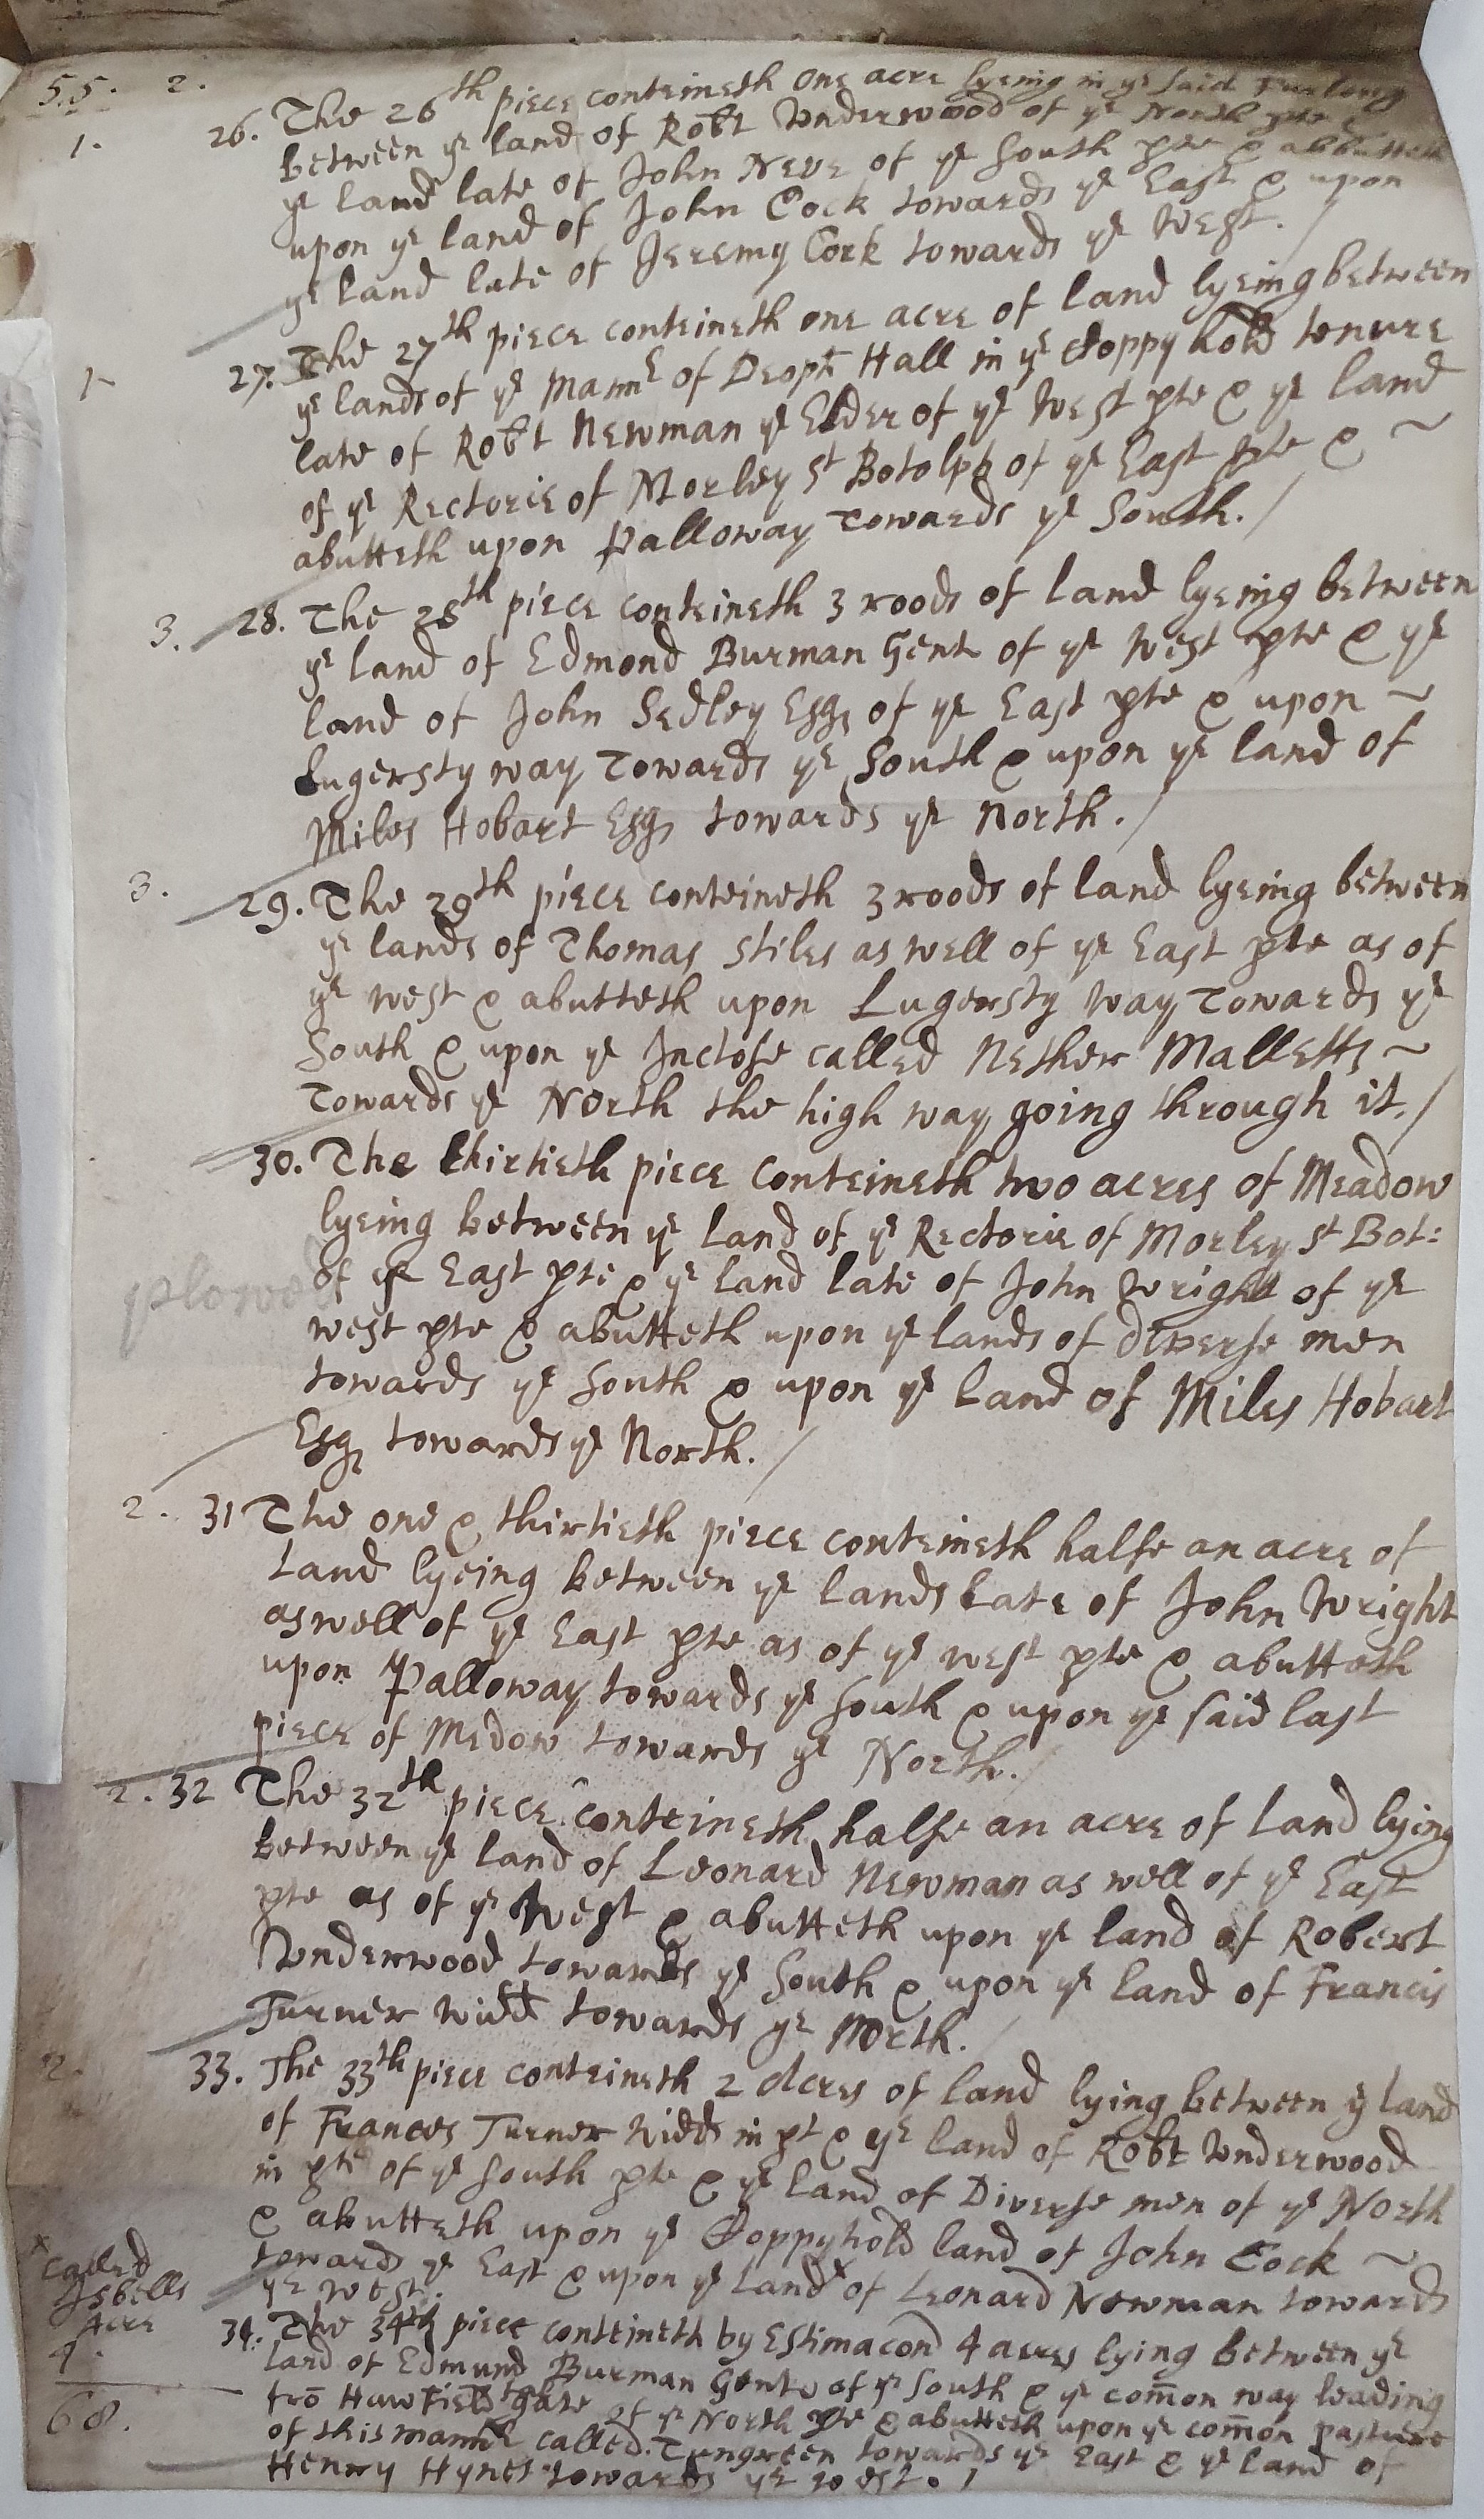 55. 2.
1. 26. The 26th piece conteineth one acre lyeing in ye said Furlong
between ye land of Robt Underwood of ye North pte &
ye land late of John Neve of ye South pte & abbutteth
upon ye land of John Cock towards ye East & upon
ye land late of Jeremy Cock towards ye West. /
1 27. The 27th piece conteineth one acre of land lyeing between
ye lands of ye Mannr of Deopħ Hall in ye Coppy hold tenure
late of Robt Newman ye Elder of ye West pte & ye land
of ye Rectorie of Morley St Botolph of ye East pte & ~
abutteth upon Palloway Towards ye South. /
3. 28. The 28th piece conteineth 3 roods of land lyeing between
ye land of Edmond Burman Gent of ye West pte & ye
land of John Sedley Esq of ye East pte & upon ~
Lugersty way Towards ye South & upon ye land of
Miles Hobart Esq towards ye North. /
3. 29. The 29th piece conteineth 3 roods of land lyeing between
ye lands of Thomas Stiles as well of ye East pte as of
ye west & abutteth upon Lugersty Way Towards ye
South & upon ye Inclose called Nether Malletts ~
Towards ye North the high way going through it. /
30. The thirtieth piece conteineth two acres of Meadow
lyeing between ye land of ye Rectorie of Morley St Bot:
plowed of ye East pte & ye land late of John Wright of ye
west pte & abutteth upon ye lands of diverse men
towards ye South & upon ye land of Miles Hobart
Esq towards ye North. /
2. 31 The one & thirtieth piece conteineth halfe an acre of
Land lyeing between ye lands Late of John Wright
as well of ye East pte as of ye west pte & abutteth
upon Palloway towards ye South & upon ye said last
piece of Medow towards ye North. /
2. 32 The 32th piece conteineth halfe an acre of land lying
between ye land of Leonard Newman as well of ye East
pte as of ye West & abutteth upon ye land of Robert
Underwood towards ye South & upon ye land of Francis
Turner Widd towards ye North. /
2. 33. The 33th piece conteineth 2 Acres of land lying between ye land
of Frances Turner Widd in pt & ye land of Robt Underwood
in pte of ye South pte & ye land of Diverse men of ye North
& abutteth upon ye Coppyhold land of John Cock ~
towards ye East & upon ye land x of Leonard Newman towards
ye West.
x called
Isbells
Acre
4. 34. The 34th piece conteineth by Estimacon 4 acres lying between ye
land of Edmund Burman Gent of ye South & ye com̄on way leading
fro̅ Hawfield gate of ye North pte & abutteth upon ye com̄on pasture
68. of this mannr called Tungreen towards ye East & ye land of
Henry Hynes towards ye West. /